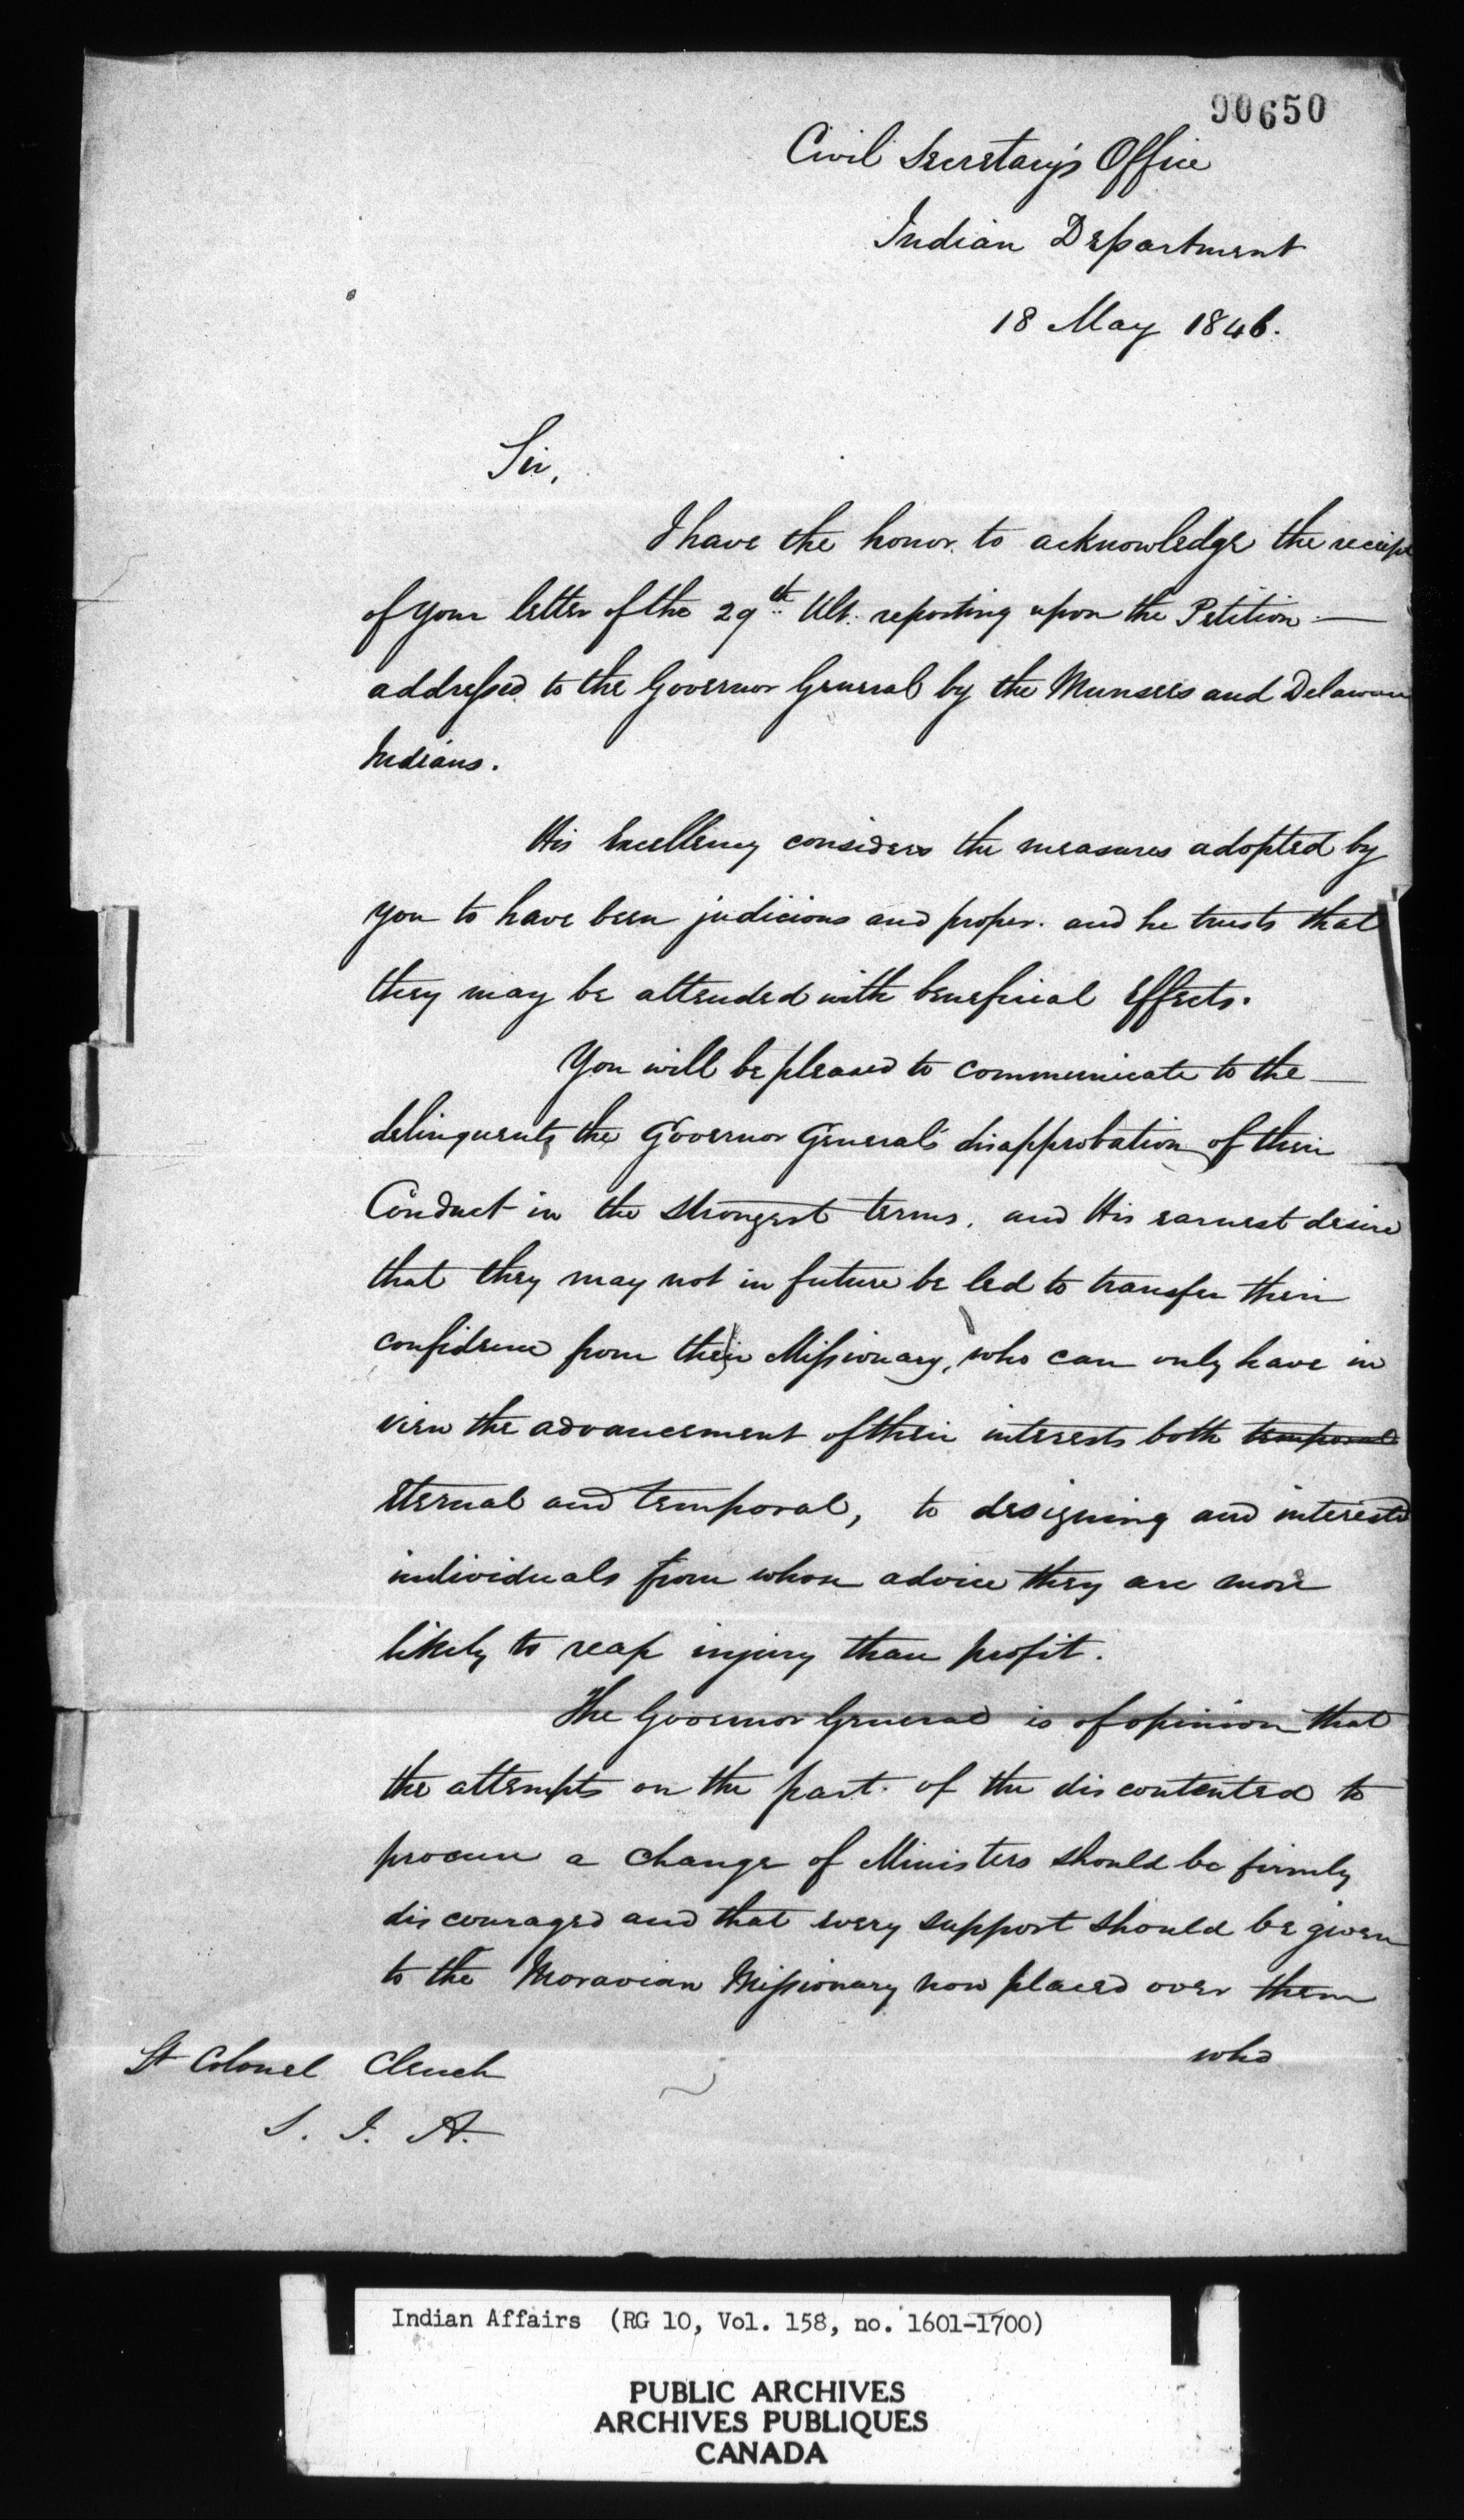 90650
Civil Secretary's Office
Indian Department
18 May 1846.
Sir,
I have the honor to acknowledge the receipt
of your letter of the 29th Ult. reporting upon the Petition —
addressed to the Governor General by the Munsees and Delaware
Indians.
His Excellency considers the measures adopted by
you to have been judicious and proper. and he trusts that
they may be attended with beneficial Effects.
You will be pleased to communicate to the —
delinquents the Governor General's disapprobation of their
Conduct in the strongest terms. and His earnest desire
that they may not in future be led to transfer their
confidence from their Missionary, who can only have in
view the advancement of their interests both temporal
eternal and temporal, to designing and interested
individuals from whose advice they are more
likely to reap injury than profit.
The Governor General is of opinion that
the attempts on the part of the discontented to
procure a change of Ministers should be firmly
discouraged and that every support should be given
to the Moravian Missionary now placed over them
who
Lt Colonel Clench
S. I. A.
Indian Affairs (RG 10, Vol. 158, no. 1601-1700)
PUBLIC ARCHIVES
ARCHIVES PUBLIQUES
CANADA